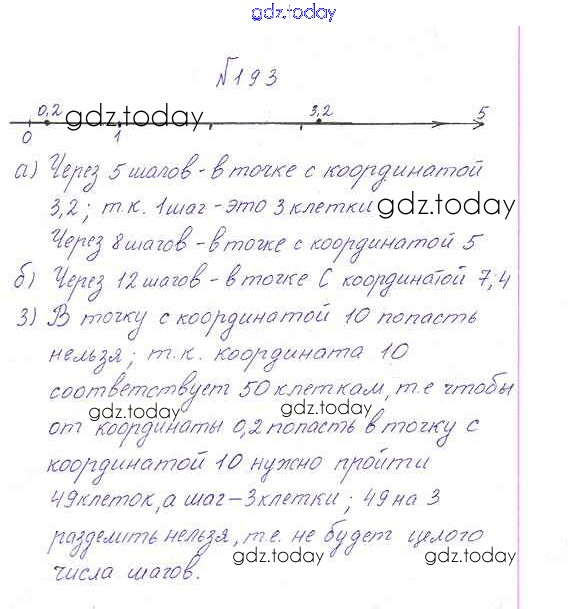 gdz.today
№193
0,2 gdz.today 3,2 5
0 1
а) Через 5 шагов - в точке с координатой
3,2; т.к. 1 шаг - это 3 клетки gdz.today
Через 8 шагов - в точке с координатой 5
б) Через 12 шагов - в точке С координатой 7,4
3) В точку с координатой 10 попасть
нельзя; т.к. координата 10
соответствует 50 клеткам, т.е чтобы
gdz.today gdz.today
от координаты 0,2 попасть в точку с
координатой 10 нужно пройти
49 клеток, а шаг - 3 клетки; 49 на 3
разделить нельзя, т.е. не будет целого
gdz.today gdz.today
числа шагов.